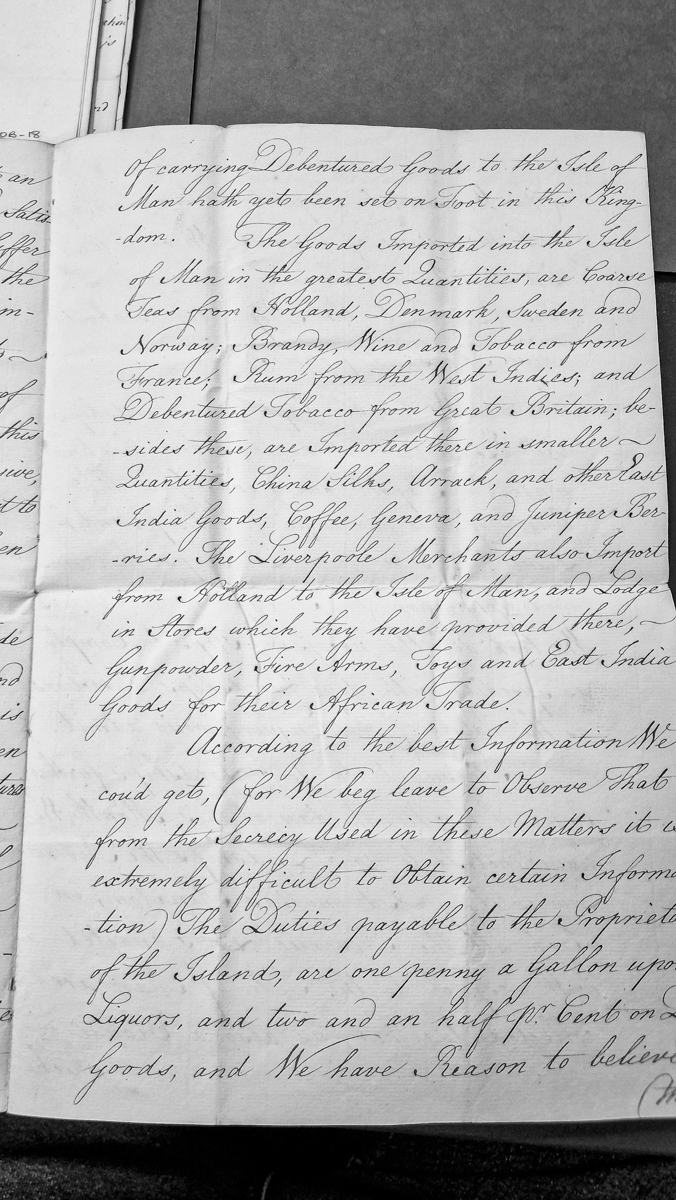 06-18
of carrying Debentured Goods to the Isle of
Man hath yet been set on Foot in this King-
-dom. The Goods Imported into the Isle
of Man in the greatest Quantities, are Coarse
Teas from Holland, Denmark, Sweden and
Norway; Brandy, Wine and Tobacco from
France; Rum from the West Indies; and
Debentured Tobacco from Great Britain; be-
-sides these, are Imported there in smaller
Quantities, China Silks, Arrack, and other East
India Goods, Coffee, Geneva, and Juniper Ber-
-ries. The Liverpoole Merchants also Import
from Holland to the Isle of Man, and Lodge
in Stores which they have provided there,
Gunpowder, Fire Arms, Toys and East India
Goods for their African Trade.
According to the best Information We
cou'd get, (for We beg leave to Observe That
from the Secrecy Used in these Matters it is
extremely difficult to Obtain certain Informa
-tion) The Duties payable to the Proprieto
of the Island, are one penny a Gallon upon
Liquors, and two and an half pr. Cent on
Goods, and We have Reason to believe